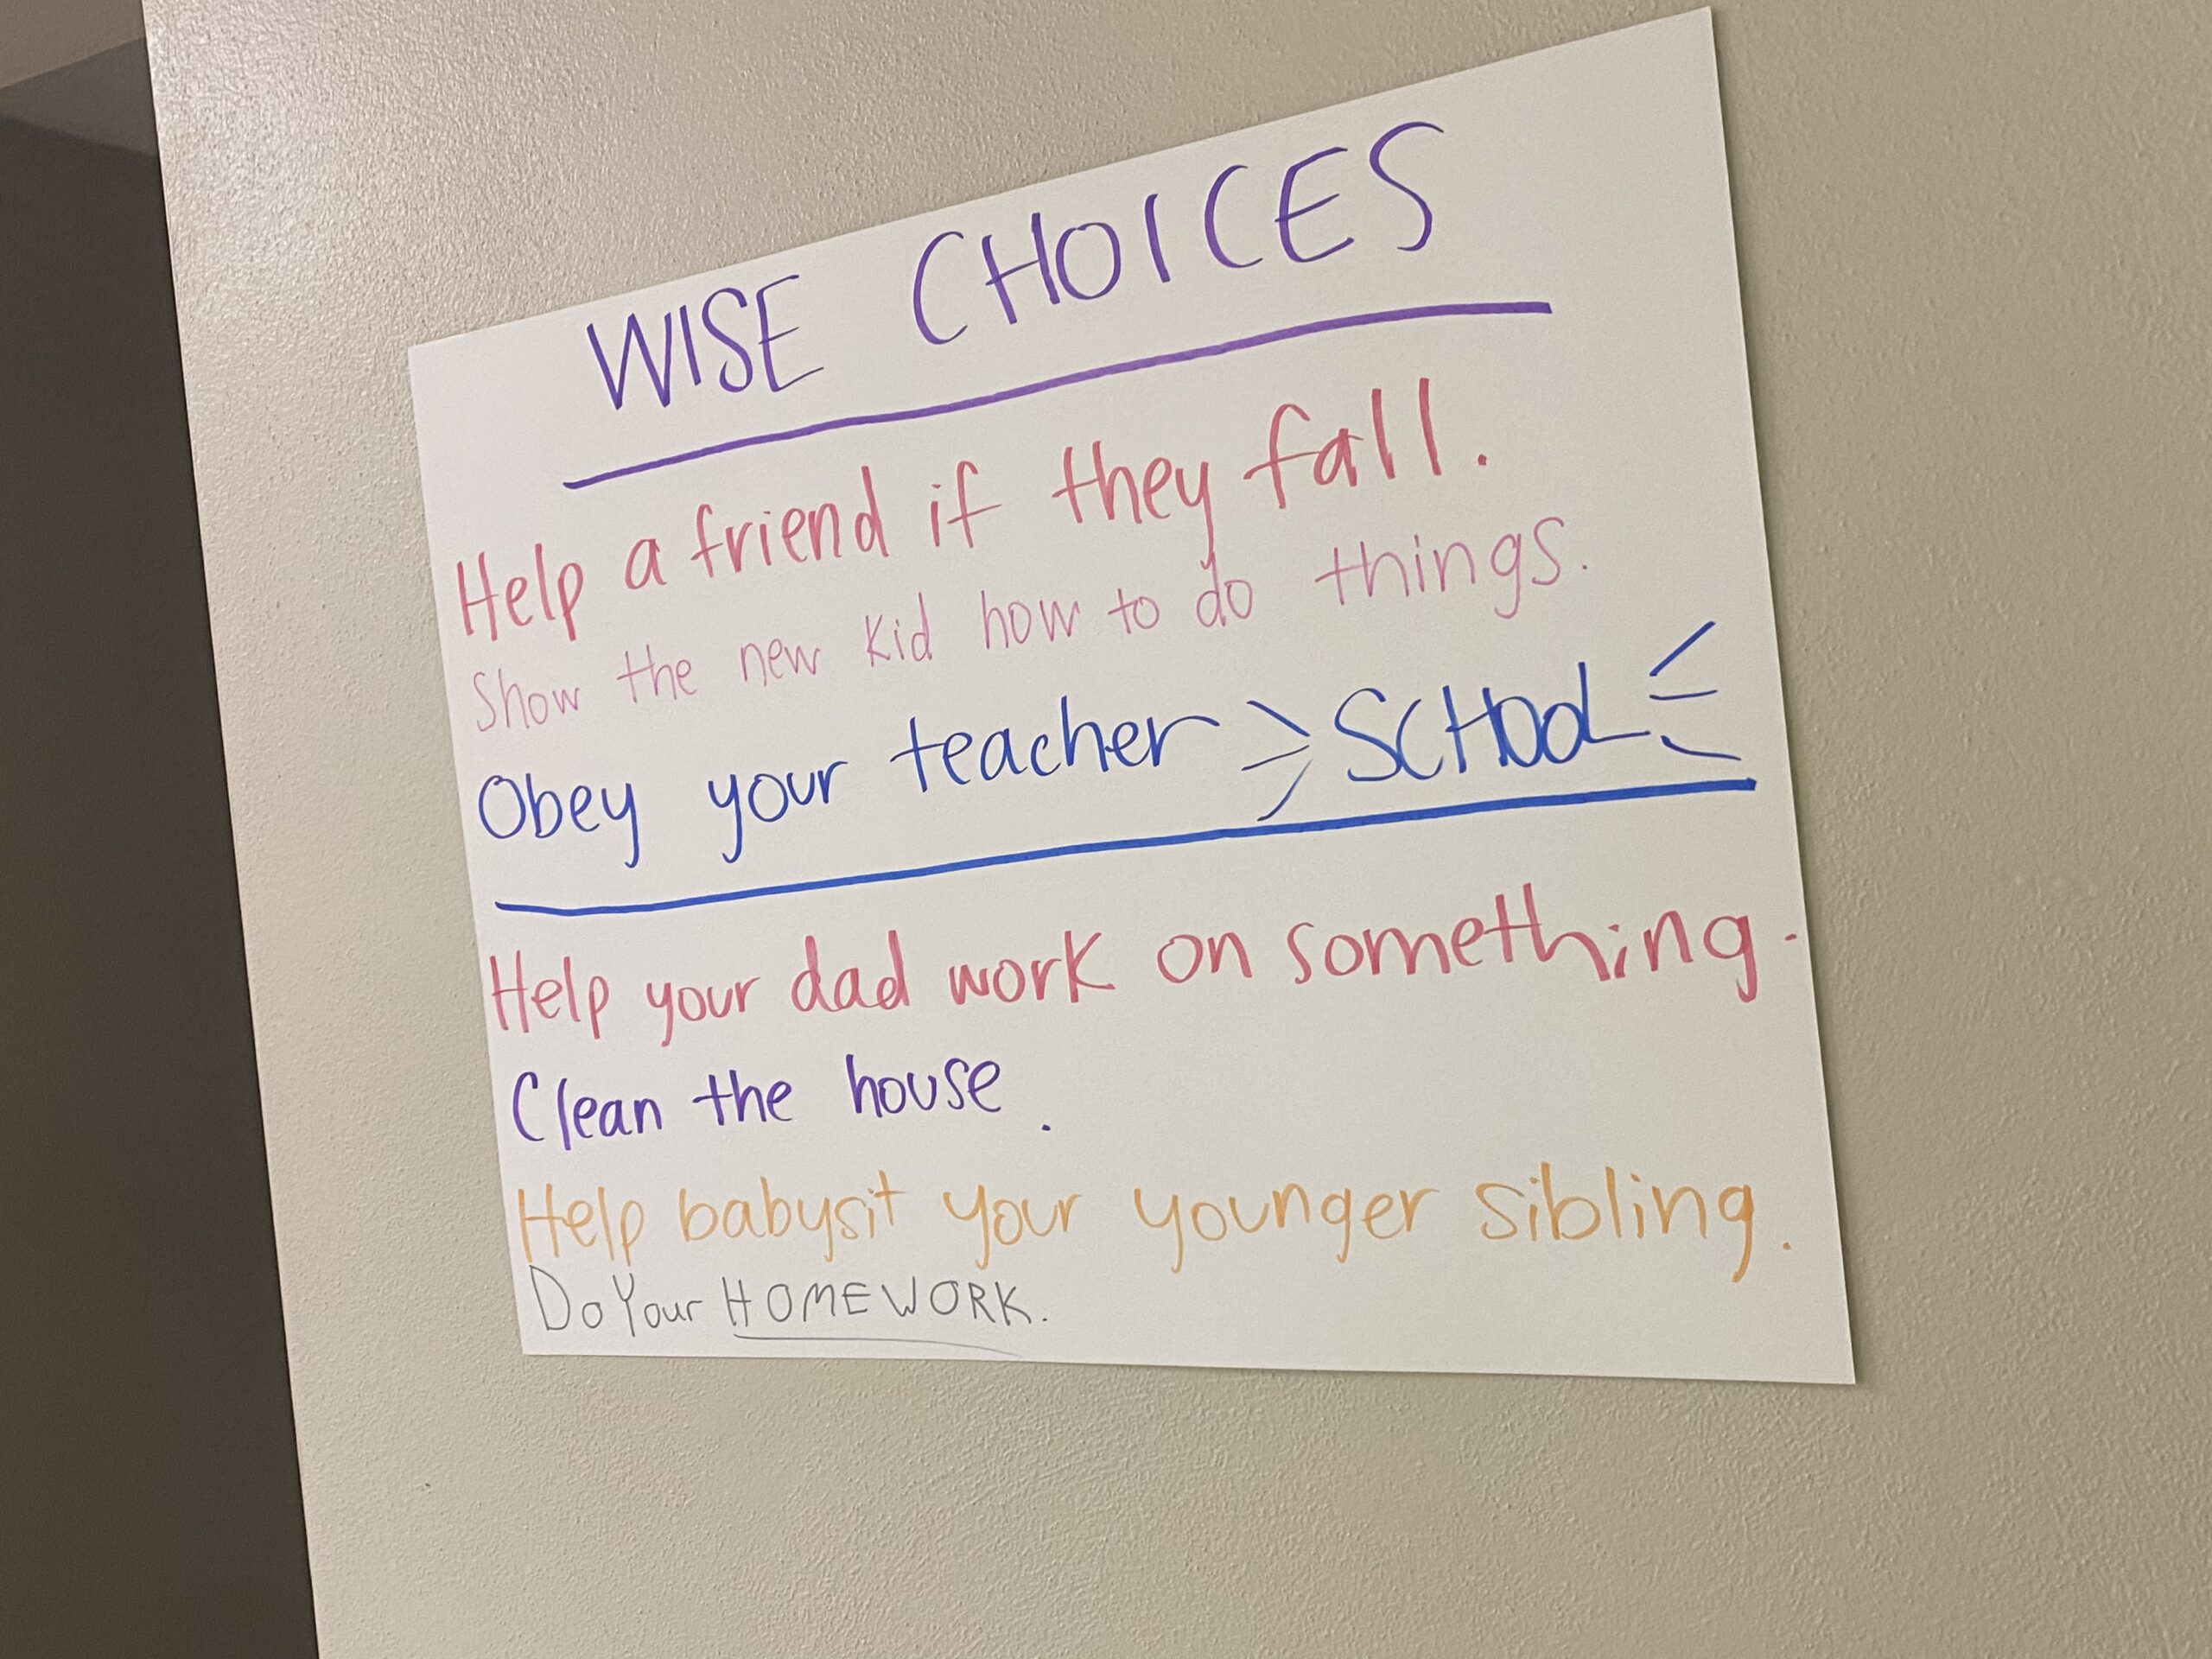 WISE CHOICES
Help a friend if they fall.
Show the new kid how to do things.
Obey your teacher SCHOOL
Help your dad work on something.
Clean the house.
Help babysit your younger sibling.
Do Your HOMEWORK.